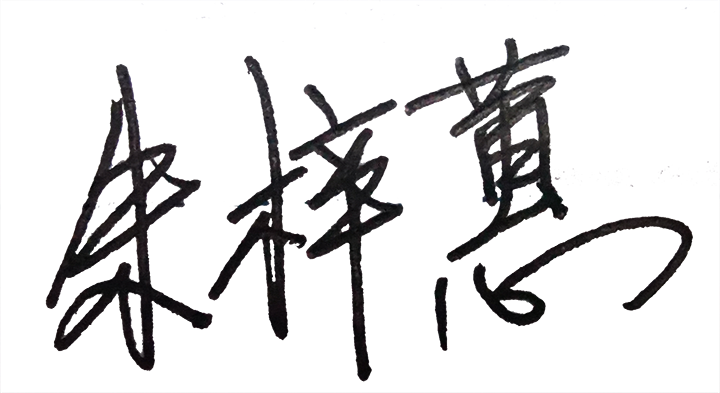 朱梓蕙